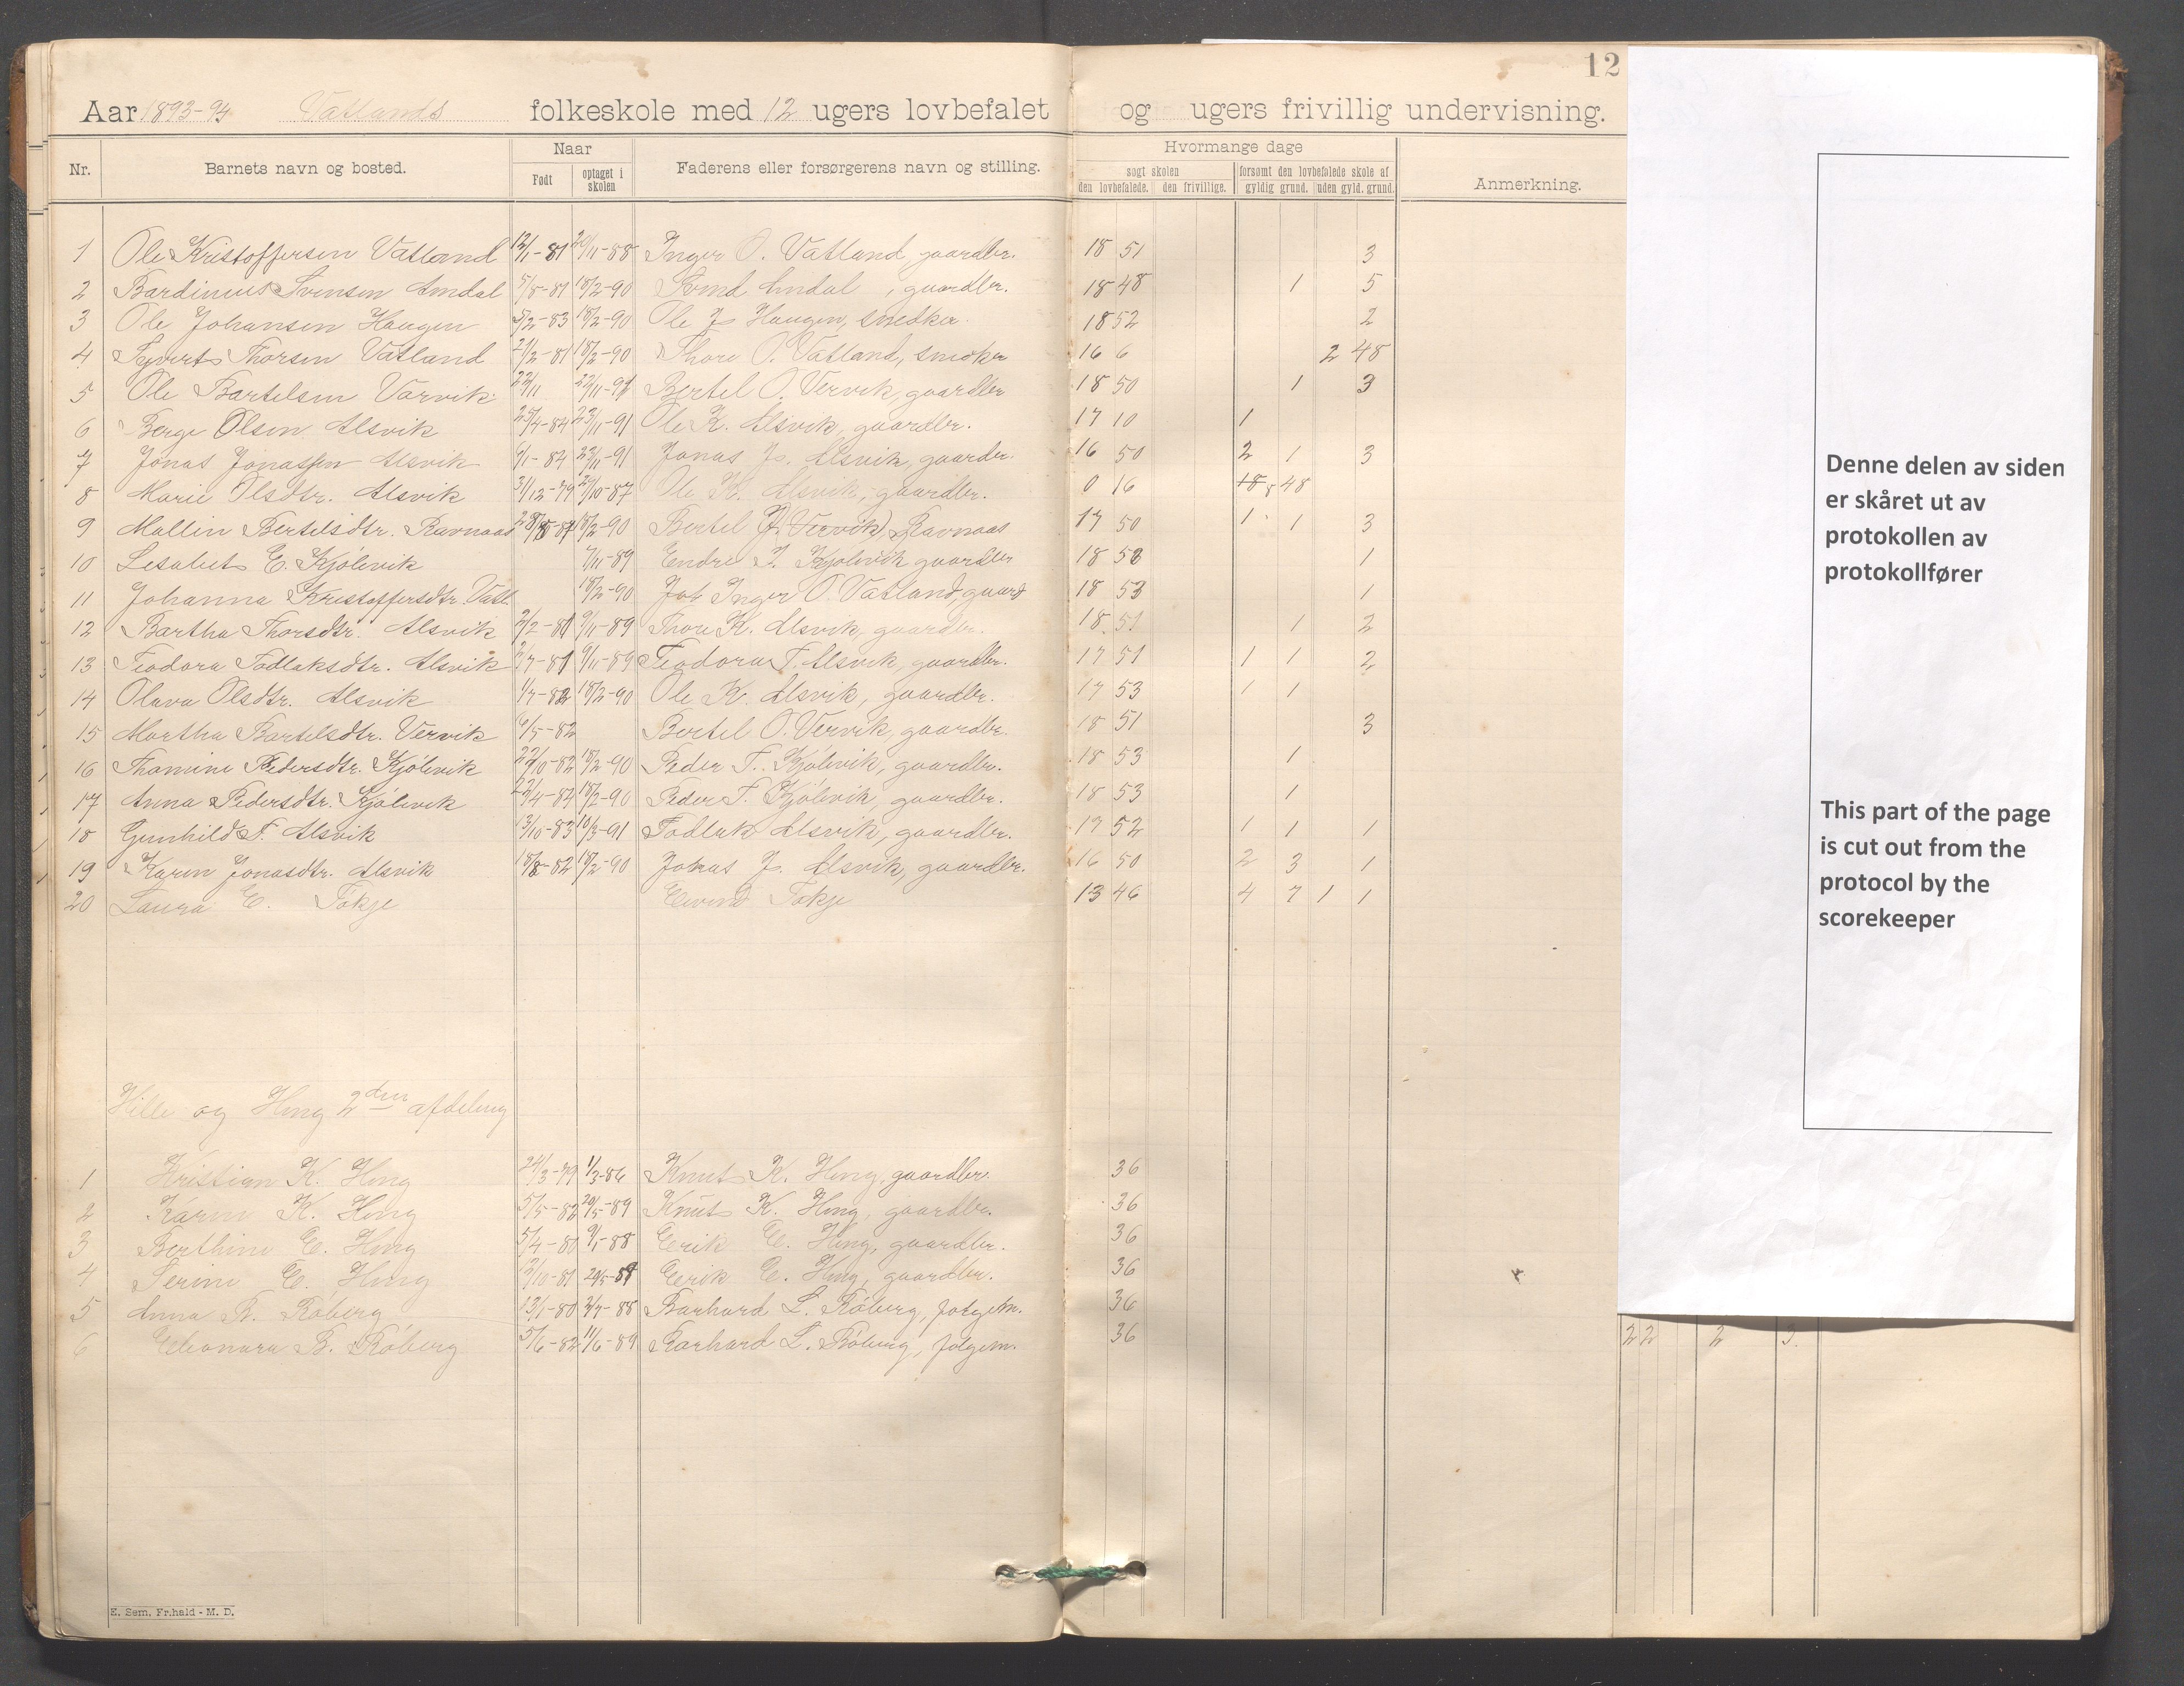 12
Aar 1893-94 Vatlands folkeskole med 12 ugers lovbefalet og ugers frivillig undervisning.
Nr. Barnets navn og bosted. Naar Født optaget i skolen Faderens eller forsørgerens navn og stilling. Hvormange dage søgt skolen den lovbefalede. den frivillige. forsømt den lovbefalede skole af gyldig grund. uden gyld. grund. Anmerkning.
1 Ole Kristoffersen Vatland 12/1-81 20/11-88 Inger O. Vatland, gaardbr. 18 51 3
2 Bardinius Svensen Amdal 5/8-81 18/2-90 Amdal, gaardbr. 18 48 1 5
3 Ole Johansen Haugen 5/2-83 18/2-90 Ole J. Haugen, snedker. 18 52 2
4 Sjurts Thorsen Vatland 21/2-81 18/2-90 Thore O. Vatland, 16 6 2 48
5 Ole Bartelsen Varvik 22/11 Bertel O. Vervik, gaardbr 18 50 1 3
6 Berge Olsen Alsvik 25/4-84 23/11-91 Ole K. Alsvik, gaardbr. 17 10 1
7 Jonas Jonassen Alsvik 6/1-84 23/11-91 Jonas J. Alsvik, gaardbr. 16 50 2 1 3
8 Marie Olsdtr. Alsvik 31/12-79 24/10-87 Ole K. Alsvik, gaardbr. 0 16 18 8 48
9 Mallin Bertelsdtr. Ravnaas 18/2-90 Bertel (J. Vervik) Ravnaas 17 50 1 1 3
10 Lesabet E. Kjölevik 7/11-89 Endre T. Kjölevik gaardbr 18 58 1
11 Johanna Kristoffersdtr. Vatl. 18/2-90 Inger O. Vatland, gaard 18 53 1
12 Bartha Thorsdtr. Alsvik 2/2-81 9/11-89 Thore K. Alsvik, gaardbr. 18 51 1 2
13 Teodora Todlaksdtr. Alsvik 2/7-81 9/11-89 Teodora T. Alsvik, gaardbr. 17 51 1 1 2
14 Olava Olsdtr. Alsvik 1/7-82 18/2-90 Ole K. Alsvik, gaardbr. 17 53 1 1
15 Martha Bartelsdtr. Vervik 6/5-82 Bertel O. Vervik, gaardbr. 18 51 3
16 Thomine Pedersdtr. Kjölevik 22/10-82 18/2-90 Peder T. Kjölevik, gaardbr. 18 53 1
17 Anna Pedersdtr. Kjölevik 22/4-84 18/2-90 Peder T. Kjölevik, gaardbr. 18 53 1
18 Gunhild T. Alsvik 13/10-83 10/3-91 Todlak Alsvik, gaardbr. 17 52 1 1 1
19 Karen Jonasdtr. Alsvik 18/8-82 18/2-90 Jonas J. Alsvik, gaardbr. 16 50 2 3 1
20 Laura E. Tökje Eivind Tökje 13 46 4 7 1 1
Hille og Heng 2den afdeling
1 Kristian K. Heng 24/3-79 1/3-86 Knut K. Heng, gaardbr. 36
2 Karen K. Heng 5/5-82 29/5-89 Knut K. Heng, gaardbr. 36
3 Berthine E. Heng 5/4-80 9/1-88 Eerik E. Heng, gaardbr. 36
4 Serine E. Heng 12/10-81 29/5-89 Eerik E. Heng, gaardbr. 36
5 Anna B. Röberg 13/1-80 2/7-88 Barhard L. Röberg, folgem. 36
6 Eleonora B. Röberg 5/6-82 11/6-89 Barhard L. Röberg, folgem. 36
22 2 3.
E. Sem, Fr.hald - M. D.
Denne delen av siden
er skåret ut av
protokollen av
protokollfører
This part of the page
is cut out from the
protocol by the
scorekeeper